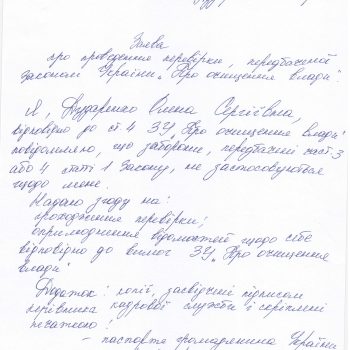 Заява
про проведення перевірки, передбаченої
законом України „Про очищення влади".
Я, Олена Сергіївна,
відповідно до ст. 4 ЗУ „Про очищення влади"
повідомляю, що заборони, передбачені част. 3
або 4 статті 1 Закону, не застосовуються
щодо мене.
Надаю згоду на:
проходження перевірки;
оприлюднення відомостей щодо себе
відповідно до вимог ЗУ „Про очищення
влади"
Додаток: копії, засвідчені підписом
керівника кадрової служби і скріплені
печаткою:
- паспорта громадянина України